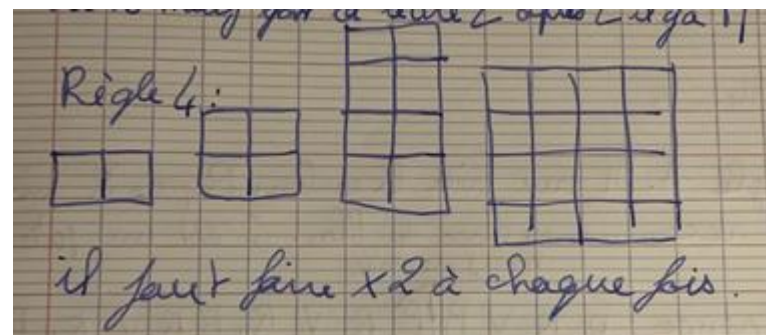 Règle 4:
il faut faire x2 à chaque fois.